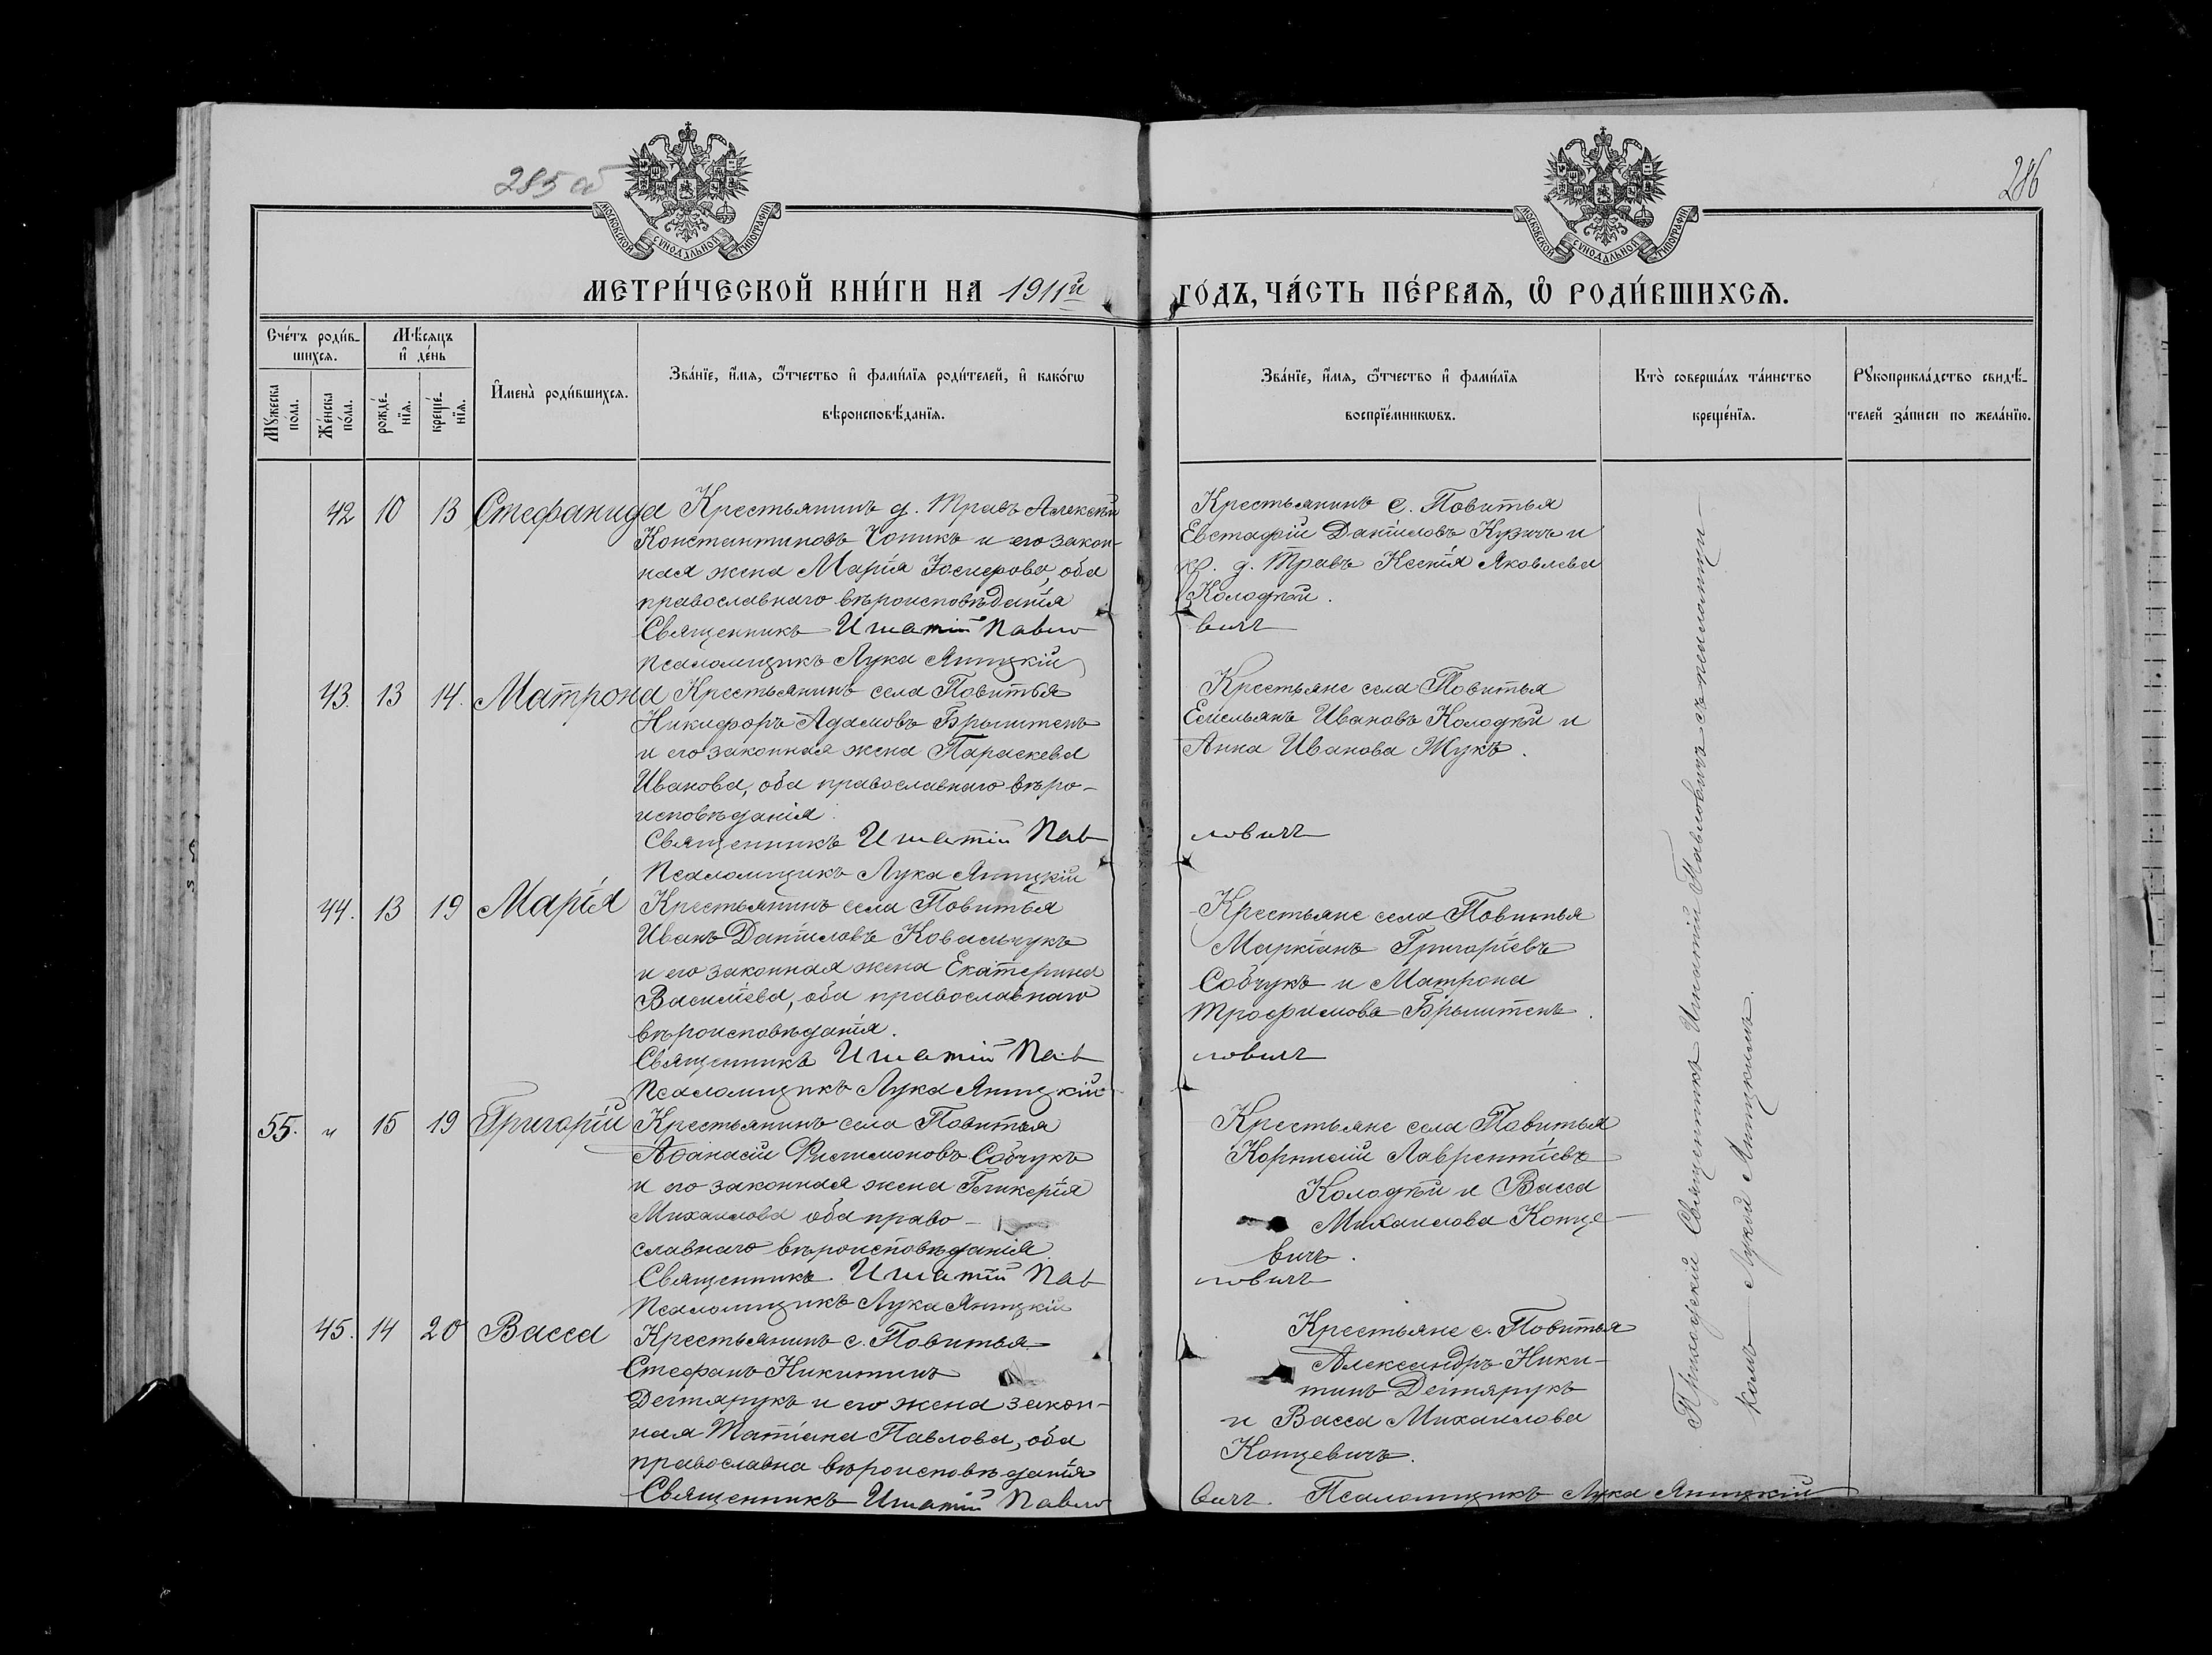 285 об
286
МОСКОВСКОЙ СѴНОДАЛЬНОЙ ТИПОГРАФІИ
МОСКОВСКОЙ СѴНОДАЛЬНОЙ ТИПОГРАФІИ
МЕТРИ́ЧЕСКОЙ КНИ́ГИ НА 1911й ГО́ДЪ, ЧА́СТЬ ПЕ́РВАѦ, Ѡ РОДИ́ВШИХСѦ.
Сче́тъ роди́в-
шихсѧ.
Мѣ́сѧцъ
и҆ де́нь
Мꙋ́жеска
по́ла.
Же́нска
по́ла.
рожде́-
нїѧ.
креще́-
нїѧ.
И҆мена̀ роди́вшихсѧ.
Зва́нїе, и҆́мѧ, ѻ҆́тчество и҆ фами́лїѧ роди́телей, и҆ како́гѡ
вѣроисповѣ́данїѧ.
Зва́нїе, и҆́мѧ, ѻ҆́тчество и҆ фами́лїѧ
воспрїе́мникѡвъ.
Кто̀ соверша́лъ та́инство
креще́нїѧ.
Рꙋкоприкла́дство свидѣ́-
телей за́писи по жела́нїю.
42 10 13 Стефанида Крестьянинъ д. Травъ Алексѣй
Константиновъ Чоникъ и его закон-
ная жена Марія Іосифова, оба
православнаго вѣроисповѣданія
Священникъ Игнатій Павло
Псаломщикъ Лука Яницкій
Крестьянинъ с. Повитья
Евстафій Даніиловъ Кузичъ и
кр. д. Травъ Ксенія Яковлева
Колодѣй.
вичъ
43. 13 14. Матрона Крестьянинъ села Повитья
Никифоръ Адамовъ Брыштенъ
и его законная жена Параскева
Иванова, оба православнаго вѣро-
исповѣданія.
Священникъ Игнатій Пав
Псаломщикъ Лука Яницкій
Крестьяне села Повитья
Емельянъ Ивановъ Колодѣй и
Анна Иванова Жукъ.
ловичъ
44. 13 19 Марія Крестьянинъ села Повитья
Иванъ Даніиловъ Ковальчукъ
и его законная жена Екатерина
Василіева, оба православнаго
вѣроисповѣданія.
Священникъ Игнатій Пав
Псаломщикъ Лука Яницкій
Крестьяне села Повитья
Маркіанъ Григоріевъ
Собчукъ и Матрона
Трофимова Брыштенъ.
ловичъ
55. „ 15 19 Григорій Крестьянинъ села Повитья
Аѳанасій Филимоновъ Собчукъ
и его законная жена Гликерія
Михаилова оба право-
славнаго вѣроисповѣданія.
Священникъ Игнатій Пав
Псаломщикъ Лука Яницкій
Крестьяне села Повитья
Корнилій Лаврентіевъ
Колодѣй и Васса
Михаилова Конце-
вичъ.
ловичъ
45. 14 20 Васса Крестьянинъ с. Повитья
Стефанъ Никитинъ
Дегтярукъ и его жена закон-
ная Татіана Павлова, оба
православна вѣроисповѣданія
Священникъ Игнатій Павло
Крестьяне с. Повитья
Александръ Ники-
тинъ Дегтярукъ
и Васса Михаилова
Концевичъ.
вичъ. Псаломщикъ Лука Яницкій
Приходскій Священникъ Игнатій Павловичъ съ псаломщи-
комъ Лукой Яницкимъ.